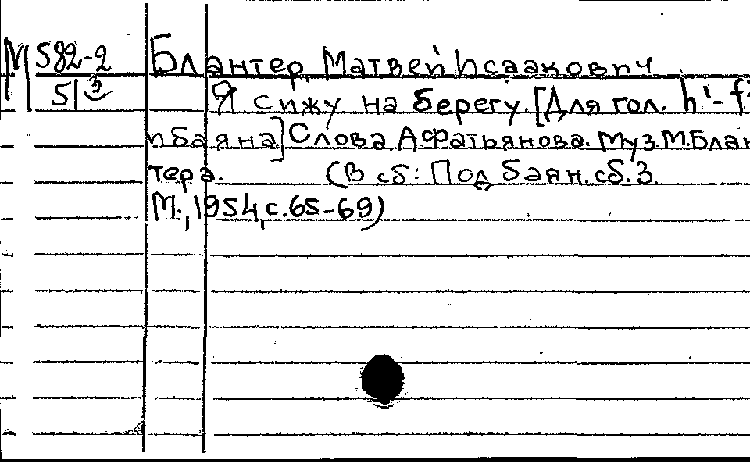 М 582-2 Блантер, Матвей Исаакович
51 3 Я сижу на берегу. [Для гол. h'-f
и баяна] Слова А. Фатьянова. Муз. М. Блан
тера. (В сб: Под баян. сб. 3.
М., 1954, с. 65-69)